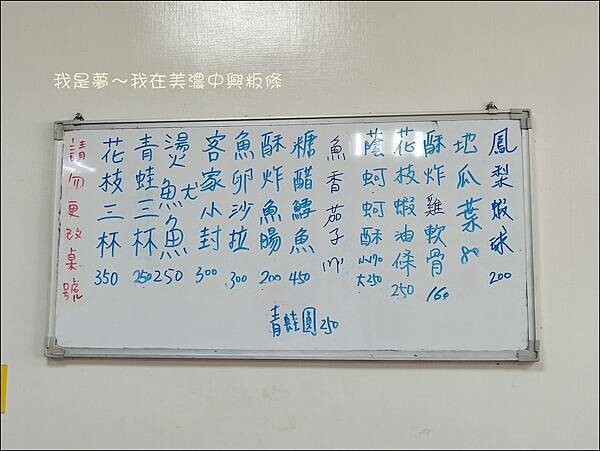 我是夢～我在美濃中興粄條
鳳梨蝦球 200
地瓜葉 80
酥炸雞軟骨 160
花枝蝦油條 250
蔭蚵蚵酥 小170 大250
魚香茄子
糖醋鱈魚 450
酥炸魚腸 200
魚卵沙拉 300
客家小封 300
燙魷魚 250
青蛙三杯 250
花枝三杯 350
請勿更改桌號
青蛙圓 250